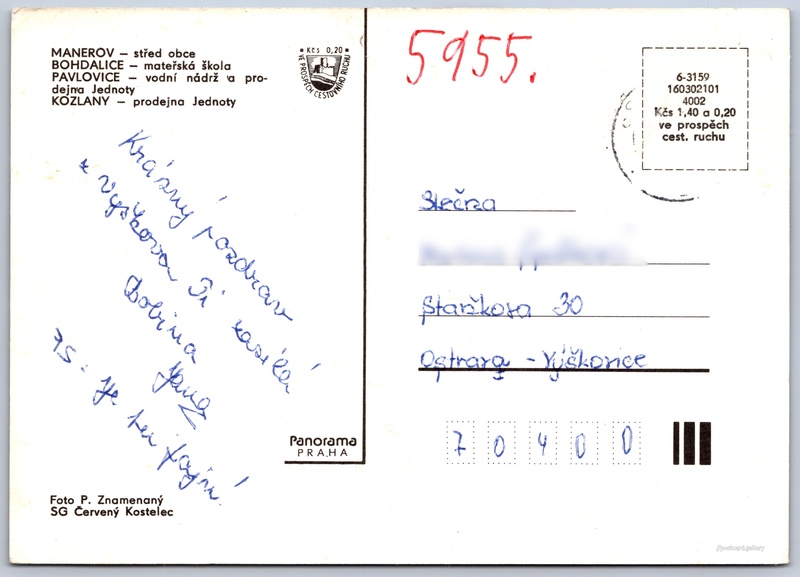 MANEROV — střed obce
BOHDALICE — mateřská škola
PAVLOVICE — vodní nádrž a pro-
dejna Jednoty
KOZLANY — prodejna Jednoty
Kčs 0,20
VE PROSPĚCH CESTOVNÍHO RUCHU
5955.
6-3159
160302101
4002
Kčs 1,40 a 0,20
ve prospěch
cest. ruchu
Krásný pozdrav
z Vyškova Ti zasílá
Jana
PS: Je tu fajn!
Slečna
Staňkova 30
Ostrava - Výškovice
70400
Panorama
PRAHA
Foto P. Znamenaný
SG Červený Kostelec